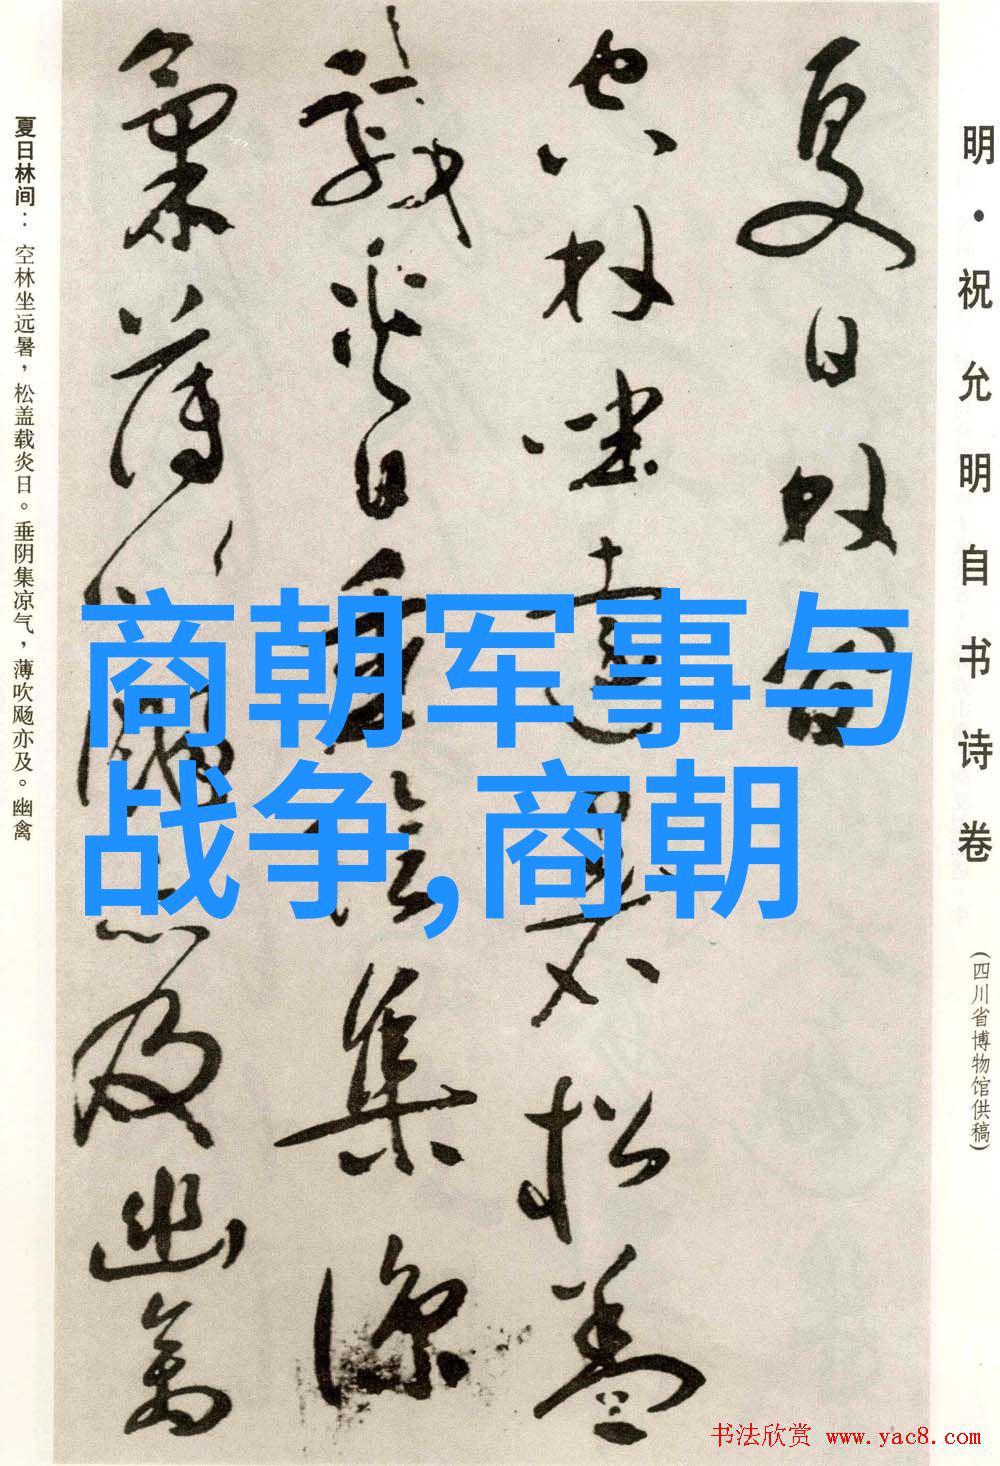 明·祝允明自书诗卷
(四川省博物馆供稿)
夏日林间
空林坐远暑松盖
载炎日垂阴集凉
气薄吹飏亦及幽禽
夏日林间：空林坐远暑，松盖载炎日。垂阴集凉气，薄吹飏亦及。幽禽
商朝军事与
战争,商朝
书法欣赏 www.yac8.com